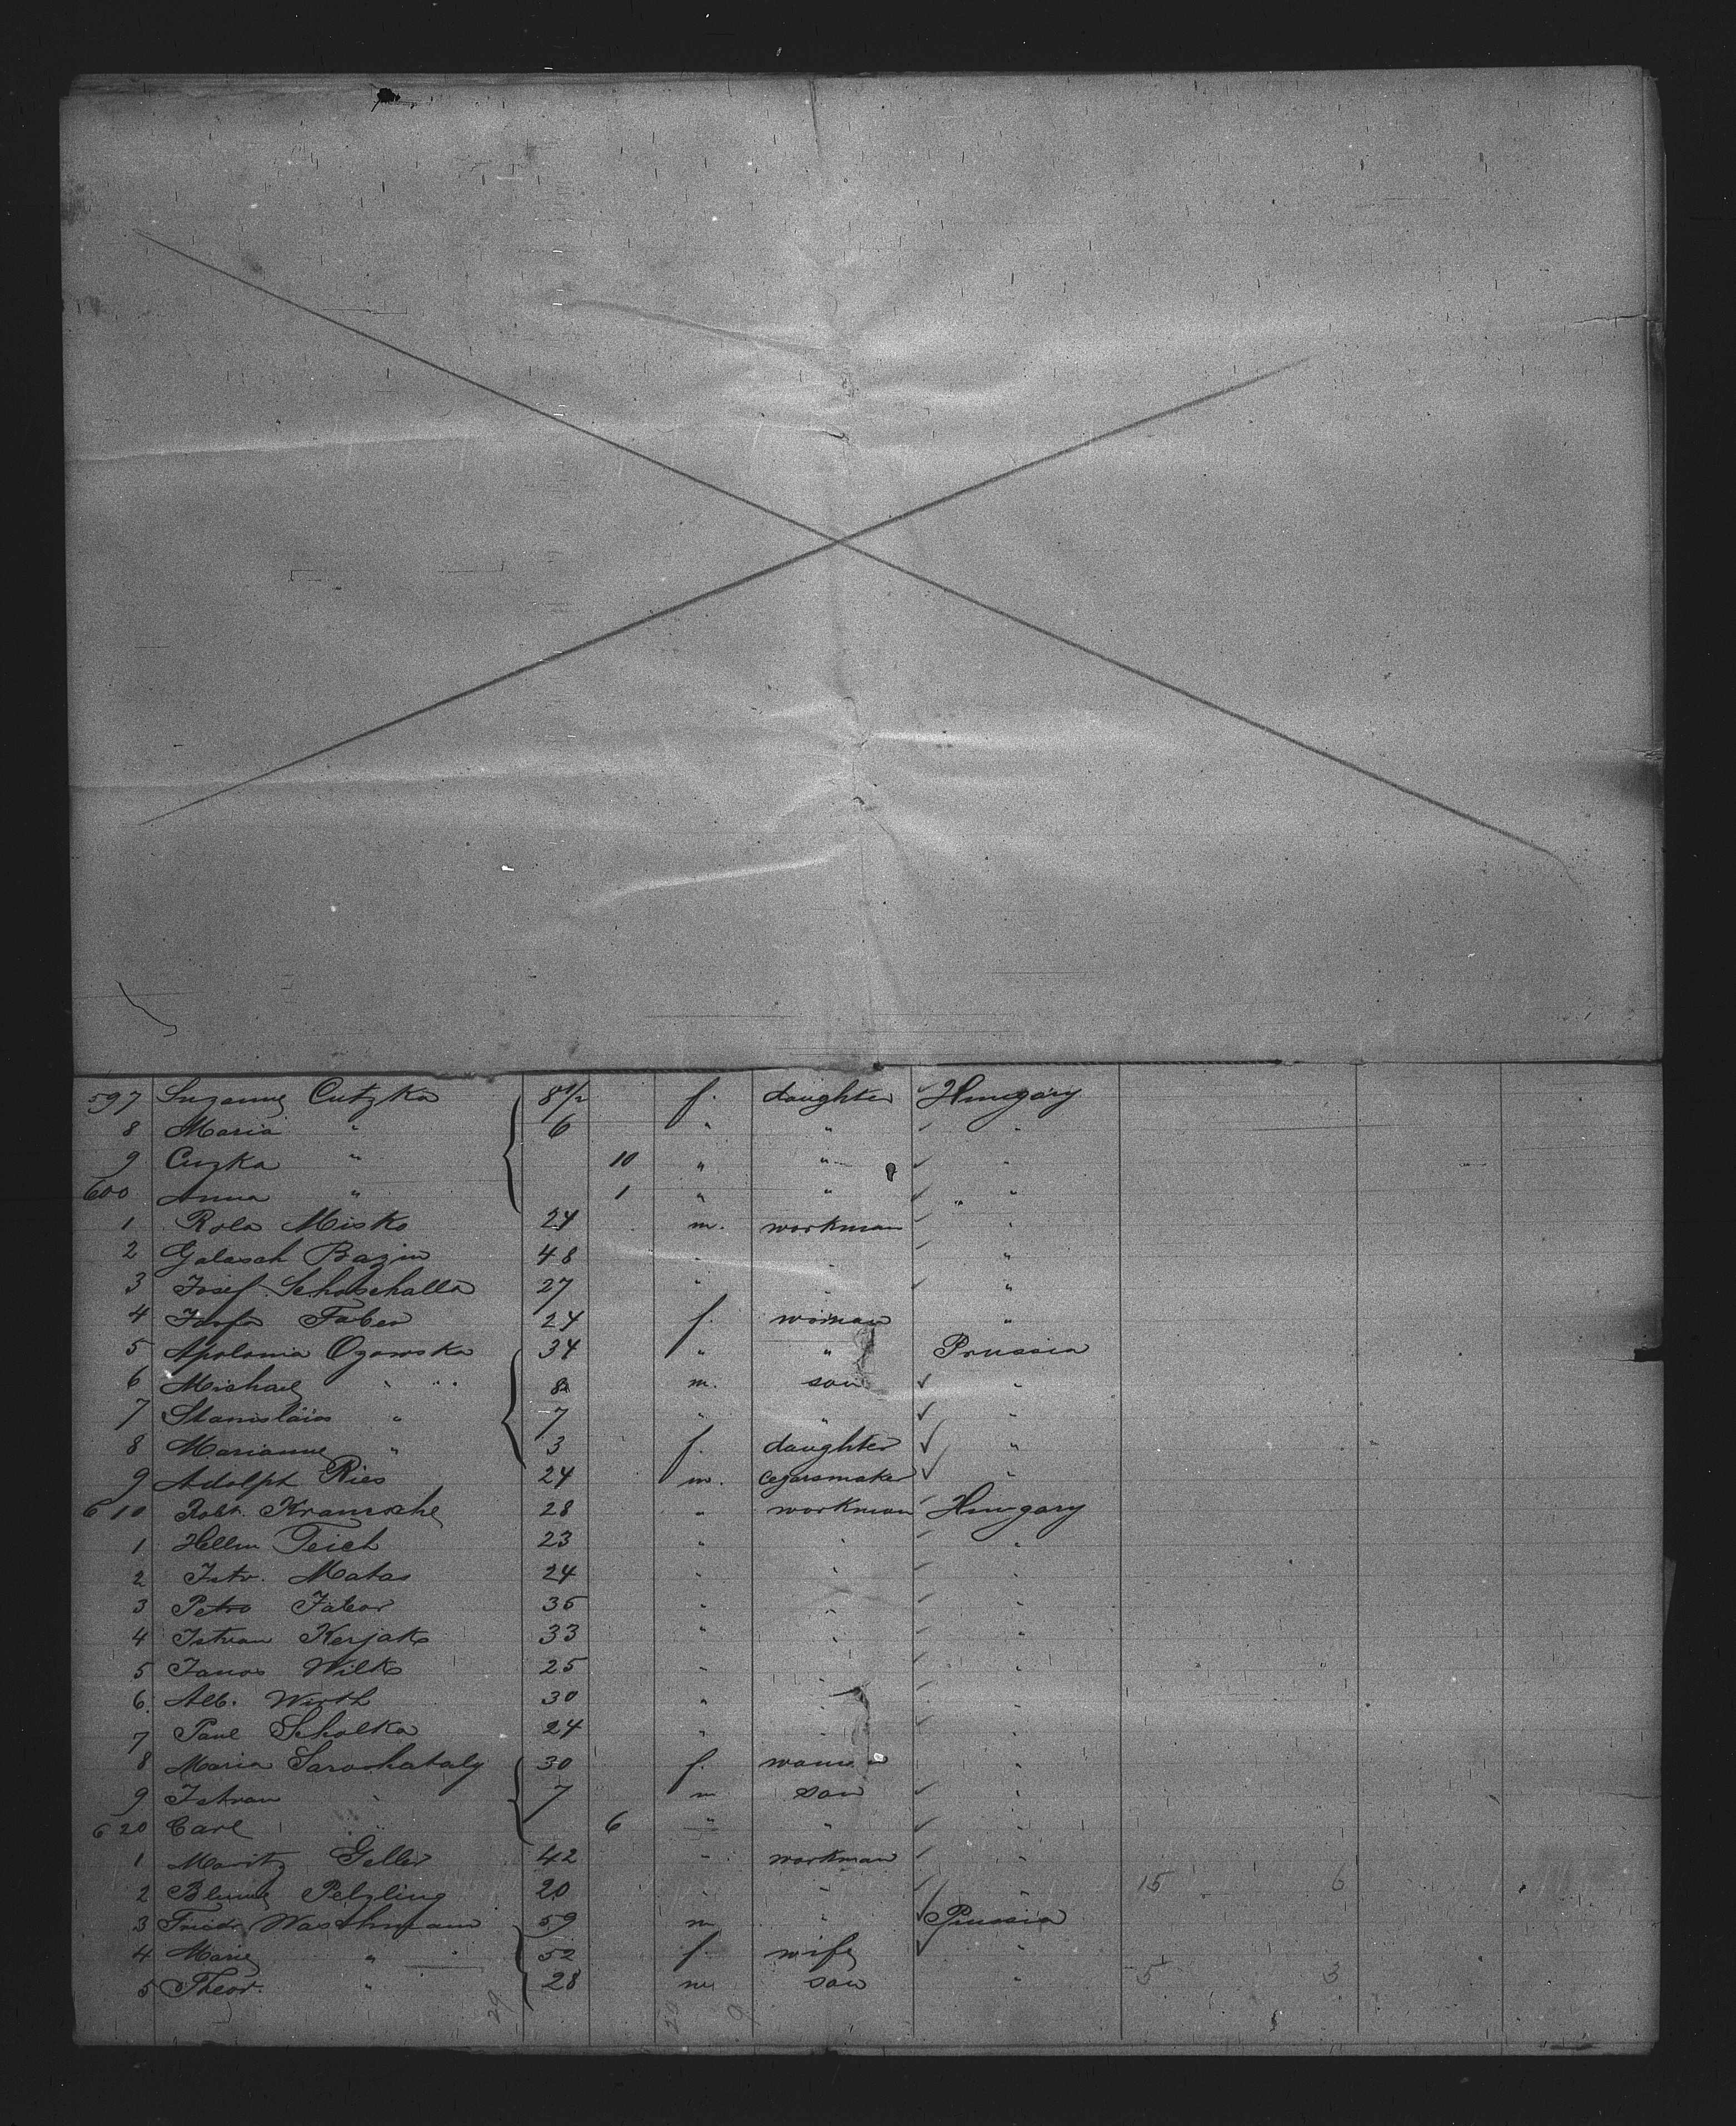 597 Suzanne Cutzka 8 1/2 f. daughter ✓ Hungary
8 Maria " 6 " " ✓ "
9 Cuzka " 10 " " ✓ "
600 Anna " 1 " " ✓ " "
1 Rola Misko 24 m. workman ✓ "
2 Galasch Bazin 48 " " ✓ "
3 Josef Schoschalla 27 " " ✓ "
4 Faber 24 f. woman "
5 Apolonia Ozowska 34 " " Prussia
6 Michael " 8 m. son ✓ "
7 Stanislaus " 7 " " ✓ "
8 Marianne " 3 f. daughter ✓ "
9 Adolph Ries 24 m. cegarsmaker ✓ "
610 Robt. 28 " workman ✓ Hungary
1 Teich 23 " " ✓ "
2 Istv. Matas 24 " " ✓ "
3 Petro 35 " " ✓ "
4 Istvan Kerjak 33 " " ✓ "
5 Janos Wilk 25 " " ✓ "
6. Alb. Wirth 30 " " ✓ "
7 Paul Scholka 24 " " ✓ "
8 Maria Saroshataly 30 f. woman "
9 Istvan " 7 m son ✓ "
620 Carl " 6 " " ✓ "
1 Moritz Geller 42 " workman ✓ "
2 Pelzling 20 " " ✓ " 15 6
3 Friedr. 59 m " ✓ Prussia
4 Marie " 52 f. wife ✓ "
5 Theod. " 28 m son " 5 3
29 29 0